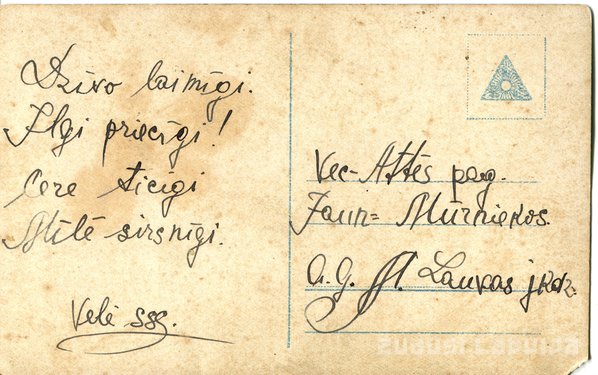 Dzīvo laimīgi.
Ilgi priecīgi!
Cere ticīgi
Mīlē sirsnīgi.
Velē
Vec-Attēs pag.
Jaun= Mūrniekos.
A. G. Laukas jkdz.